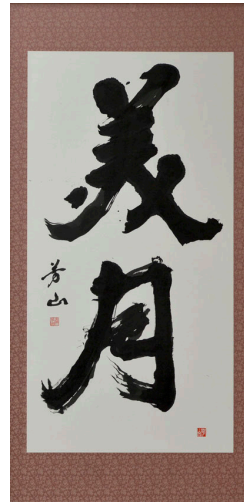 美月
芳山